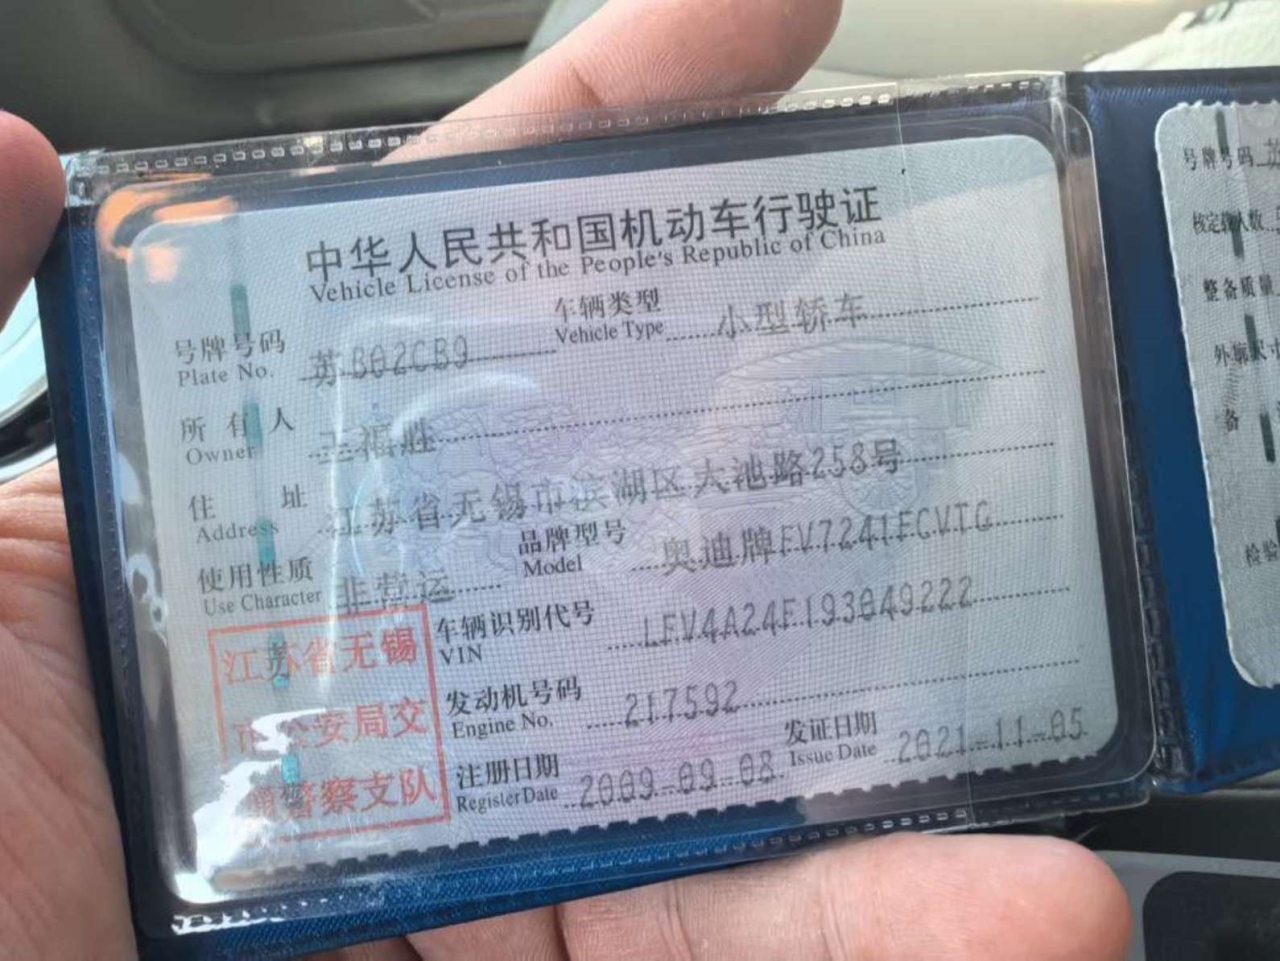 中华人民共和国机动车行驶证
Vehicle License of the People's Republic of China
号牌号码 苏B02CB9 车辆类型 小型轿车
Plate No. Vehicle Type
所有人 王福胜
Owner
住址 江苏省无锡市滨湖区大池路258号
Address
使用性质 非营运 品牌型号 奥迪牌FV7241FCVTG
Use Character Model
车辆识别代号 LFV4A24F193049222
VIN
发动机号码 217592
Engine No.
注册日期 2009-09-08 发证日期 2021-11-05
Register Date Issue Date
江苏省无锡
市公安局交
通警察支队
号牌号码 苏
核定载人数
整备质量
外廓尺寸
备
检验